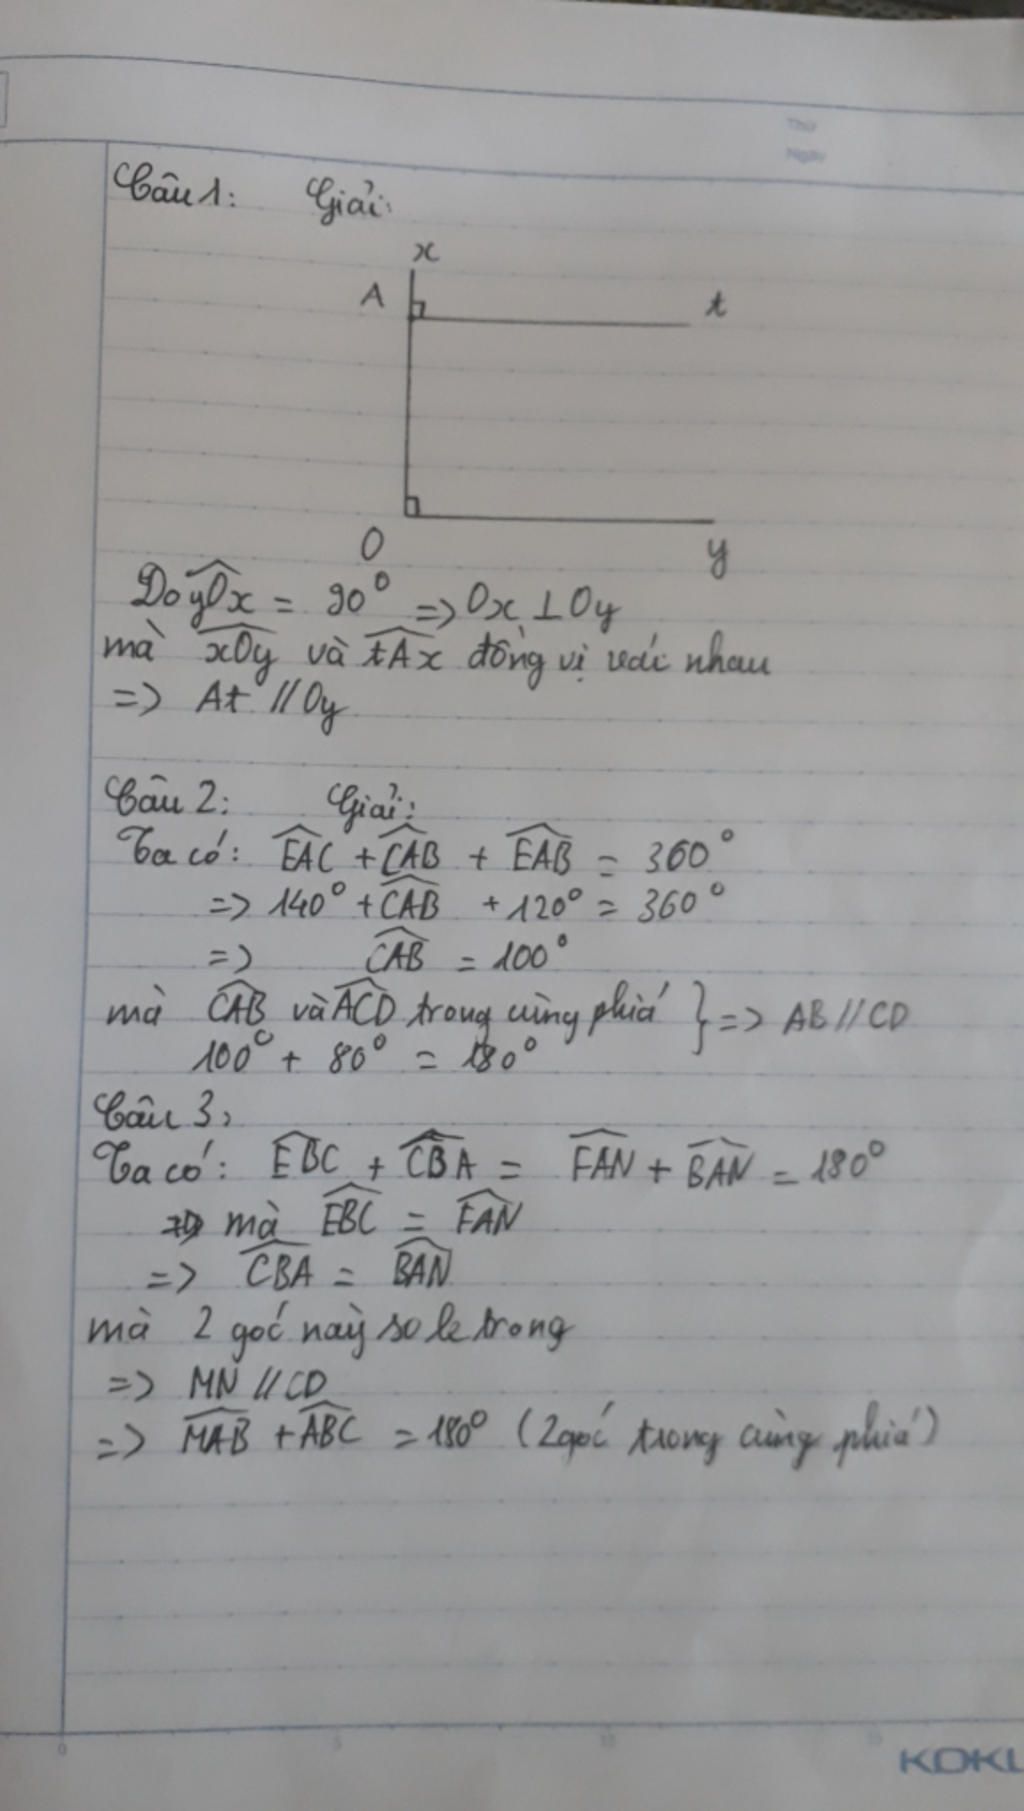 Thứ
Ngày
Câu 1: Giải:
x
A
t
O
y
Do \widehat{yOx} = 90° => Ox ⊥ Oy
mà \widehat{xOy} và \widehat{tAx} đồng vị với nhau
=> At // Oy
Câu 2: Giải:
Ta có: \widehat{EAC} + \widehat{CAB} + \widehat{EAB} = 360°
=> 140° + \widehat{CAB} + 120° = 360°
=> \widehat{CAB} = 100°
mà \widehat{CAB} và \widehat{ACD} trong cùng phiá } => AB // CD
100° + 80° = 180°
Câu 3,
Ta có: \widehat{EBC} + \widehat{CBA} = \widehat{FAN} + \widehat{BAN} = 180°
mà \widehat{EBC} = \widehat{FAN}
=> \widehat{CBA} = \widehat{BAN}
mà 2 góc này so le trong
=> MN // CD
=> \widehat{MAB} + \widehat{ABC} = 180° (2 góc trong cùng phiá)
0 5 10 15
KOKU